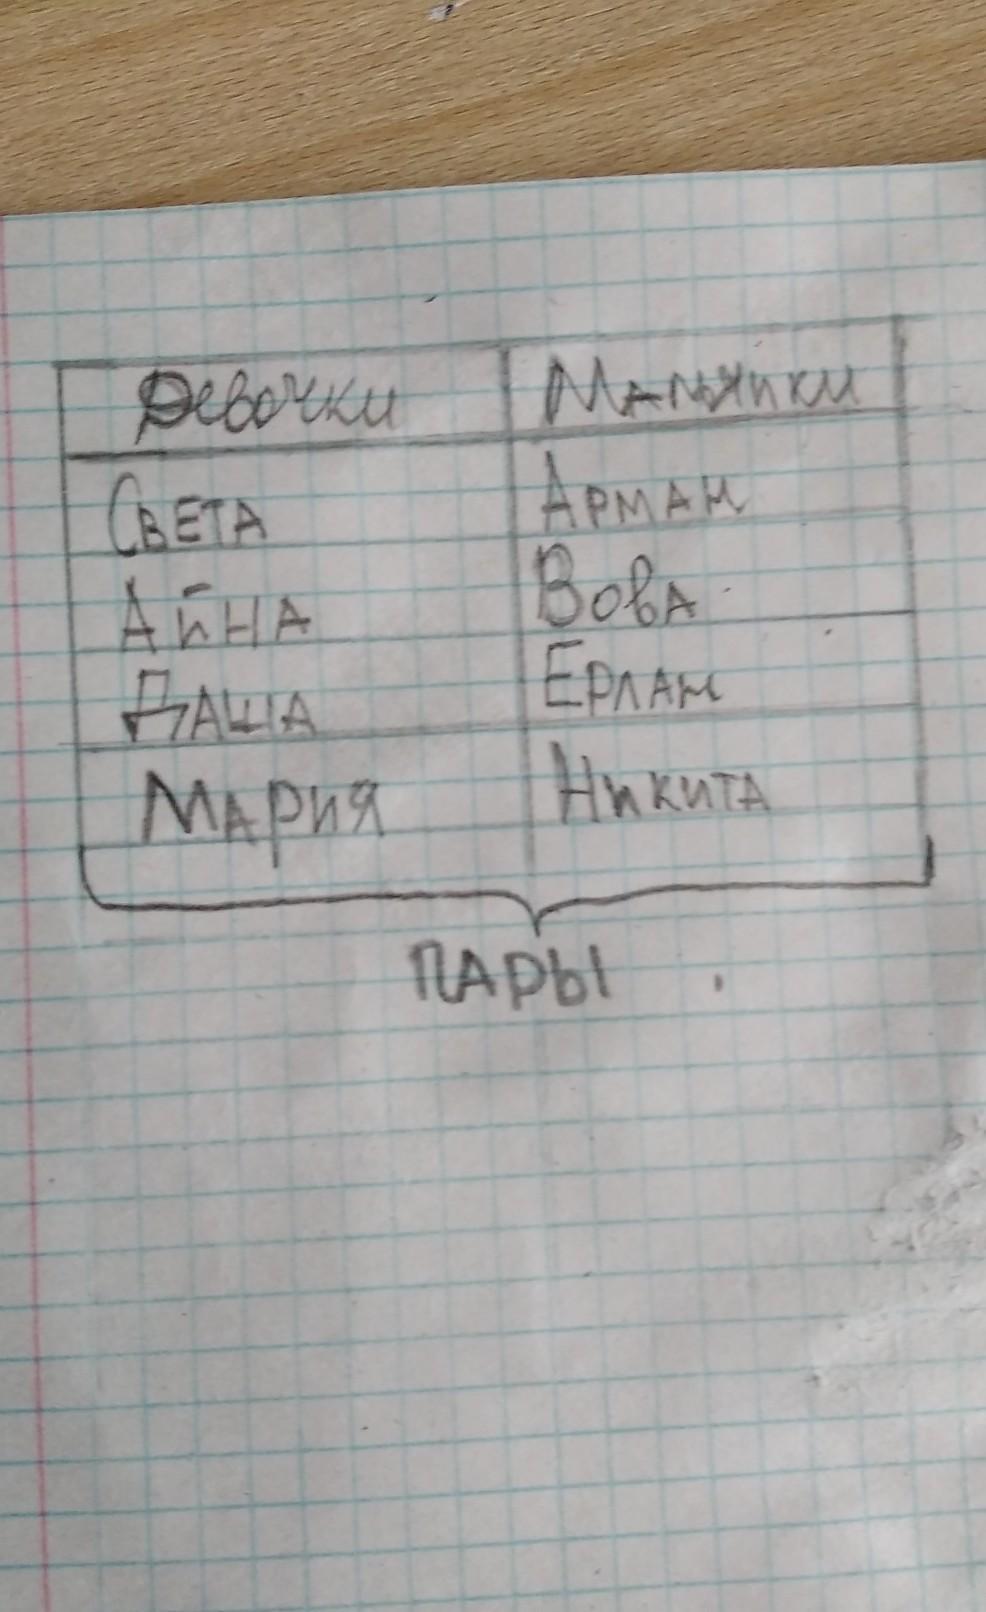 Девочки Мальчики
Света Арман
Айна Вова
Даша Ерлан
Мария Никита
ПАРЫ